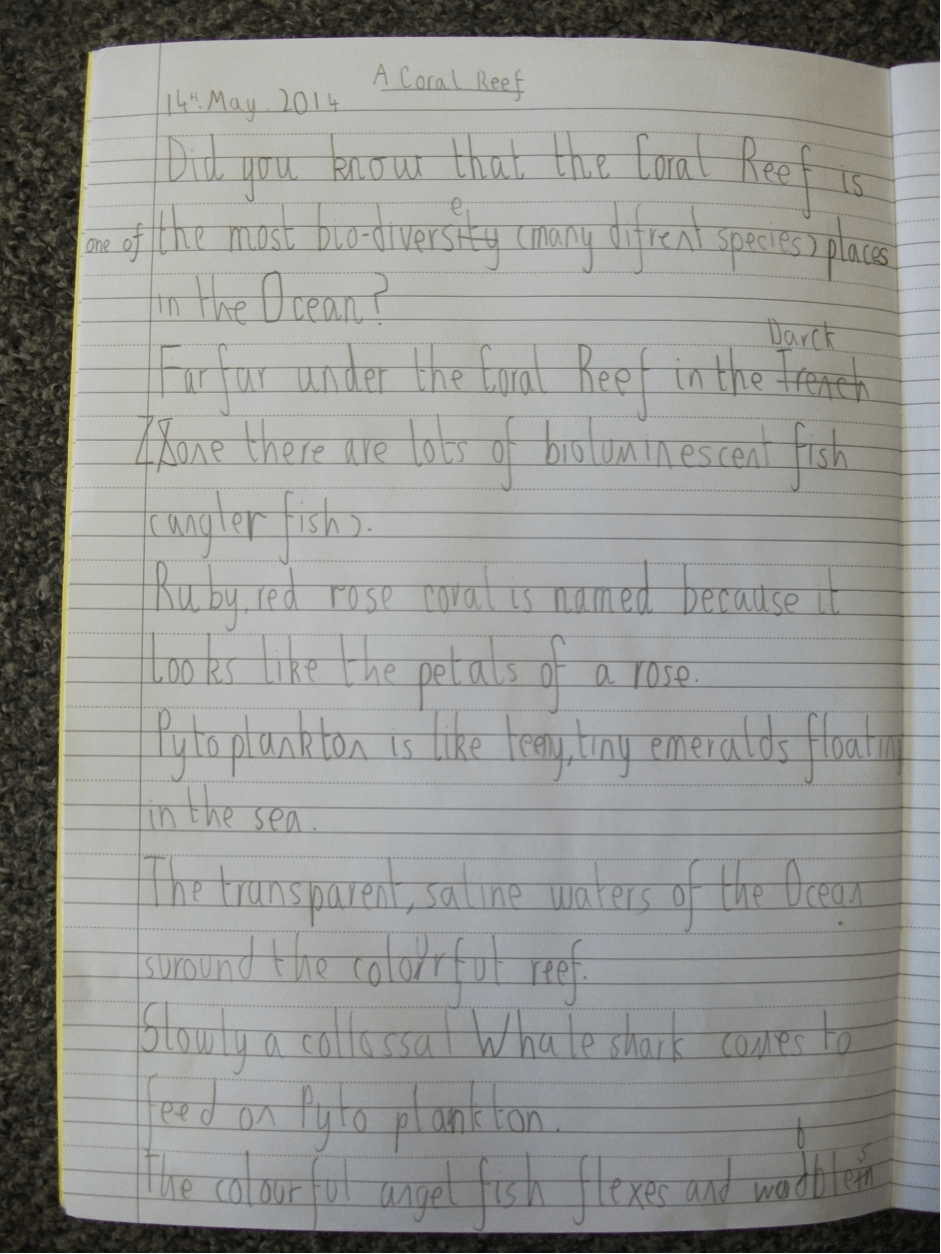 A Coral Reef
14th May 2014
Did you know that the Coral Reef is
one of the most bio-diverse (many difrent species) places
in the Ocean?
Far far under the Coral Reef in the Darck
Zone there are lots of bioluminescent fish
(angler fish).
Ruby, red rose coral is named because it
looks like the petals of a rose.
Pyto plankton is like teeny, tiny emeralds floating
in the sea.
The transparent, saline waters of the Ocean
suround the colourful reef.
Slowly a collossal Whale shark comes to
feed on Pyto plankton.
The colourful angel fish flexes and